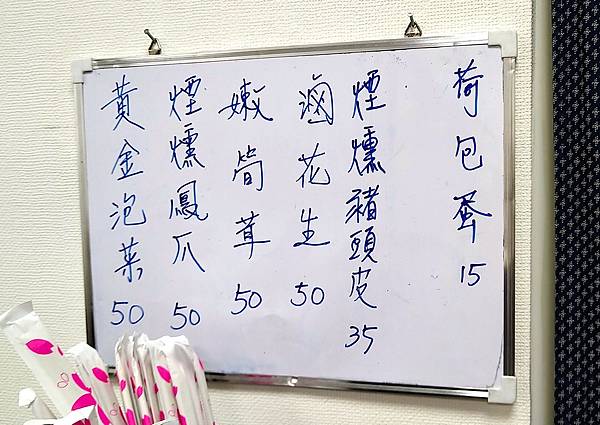 荷包蛋 15
煙燻豬頭皮 35
滷花生 50
嫩筍茸 50
煙燻鳳爪 50
黃金泡菜 50